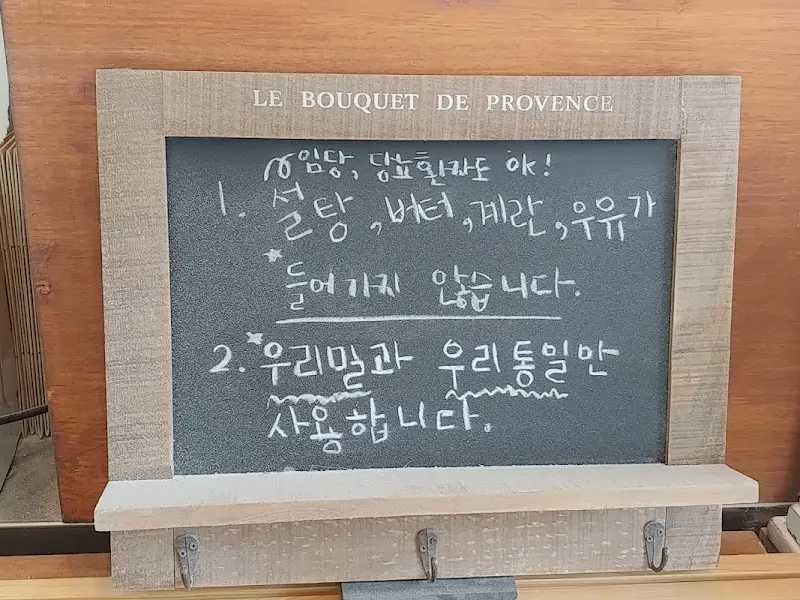 LE BOUQUET DE PROVENCE
임당, 당뇨환자도 OK!
1. 설탕, 버터, 계란, 우유가
*들어가지 않습니다.
2. *우리밀과 우리통밀만
사용합니다.